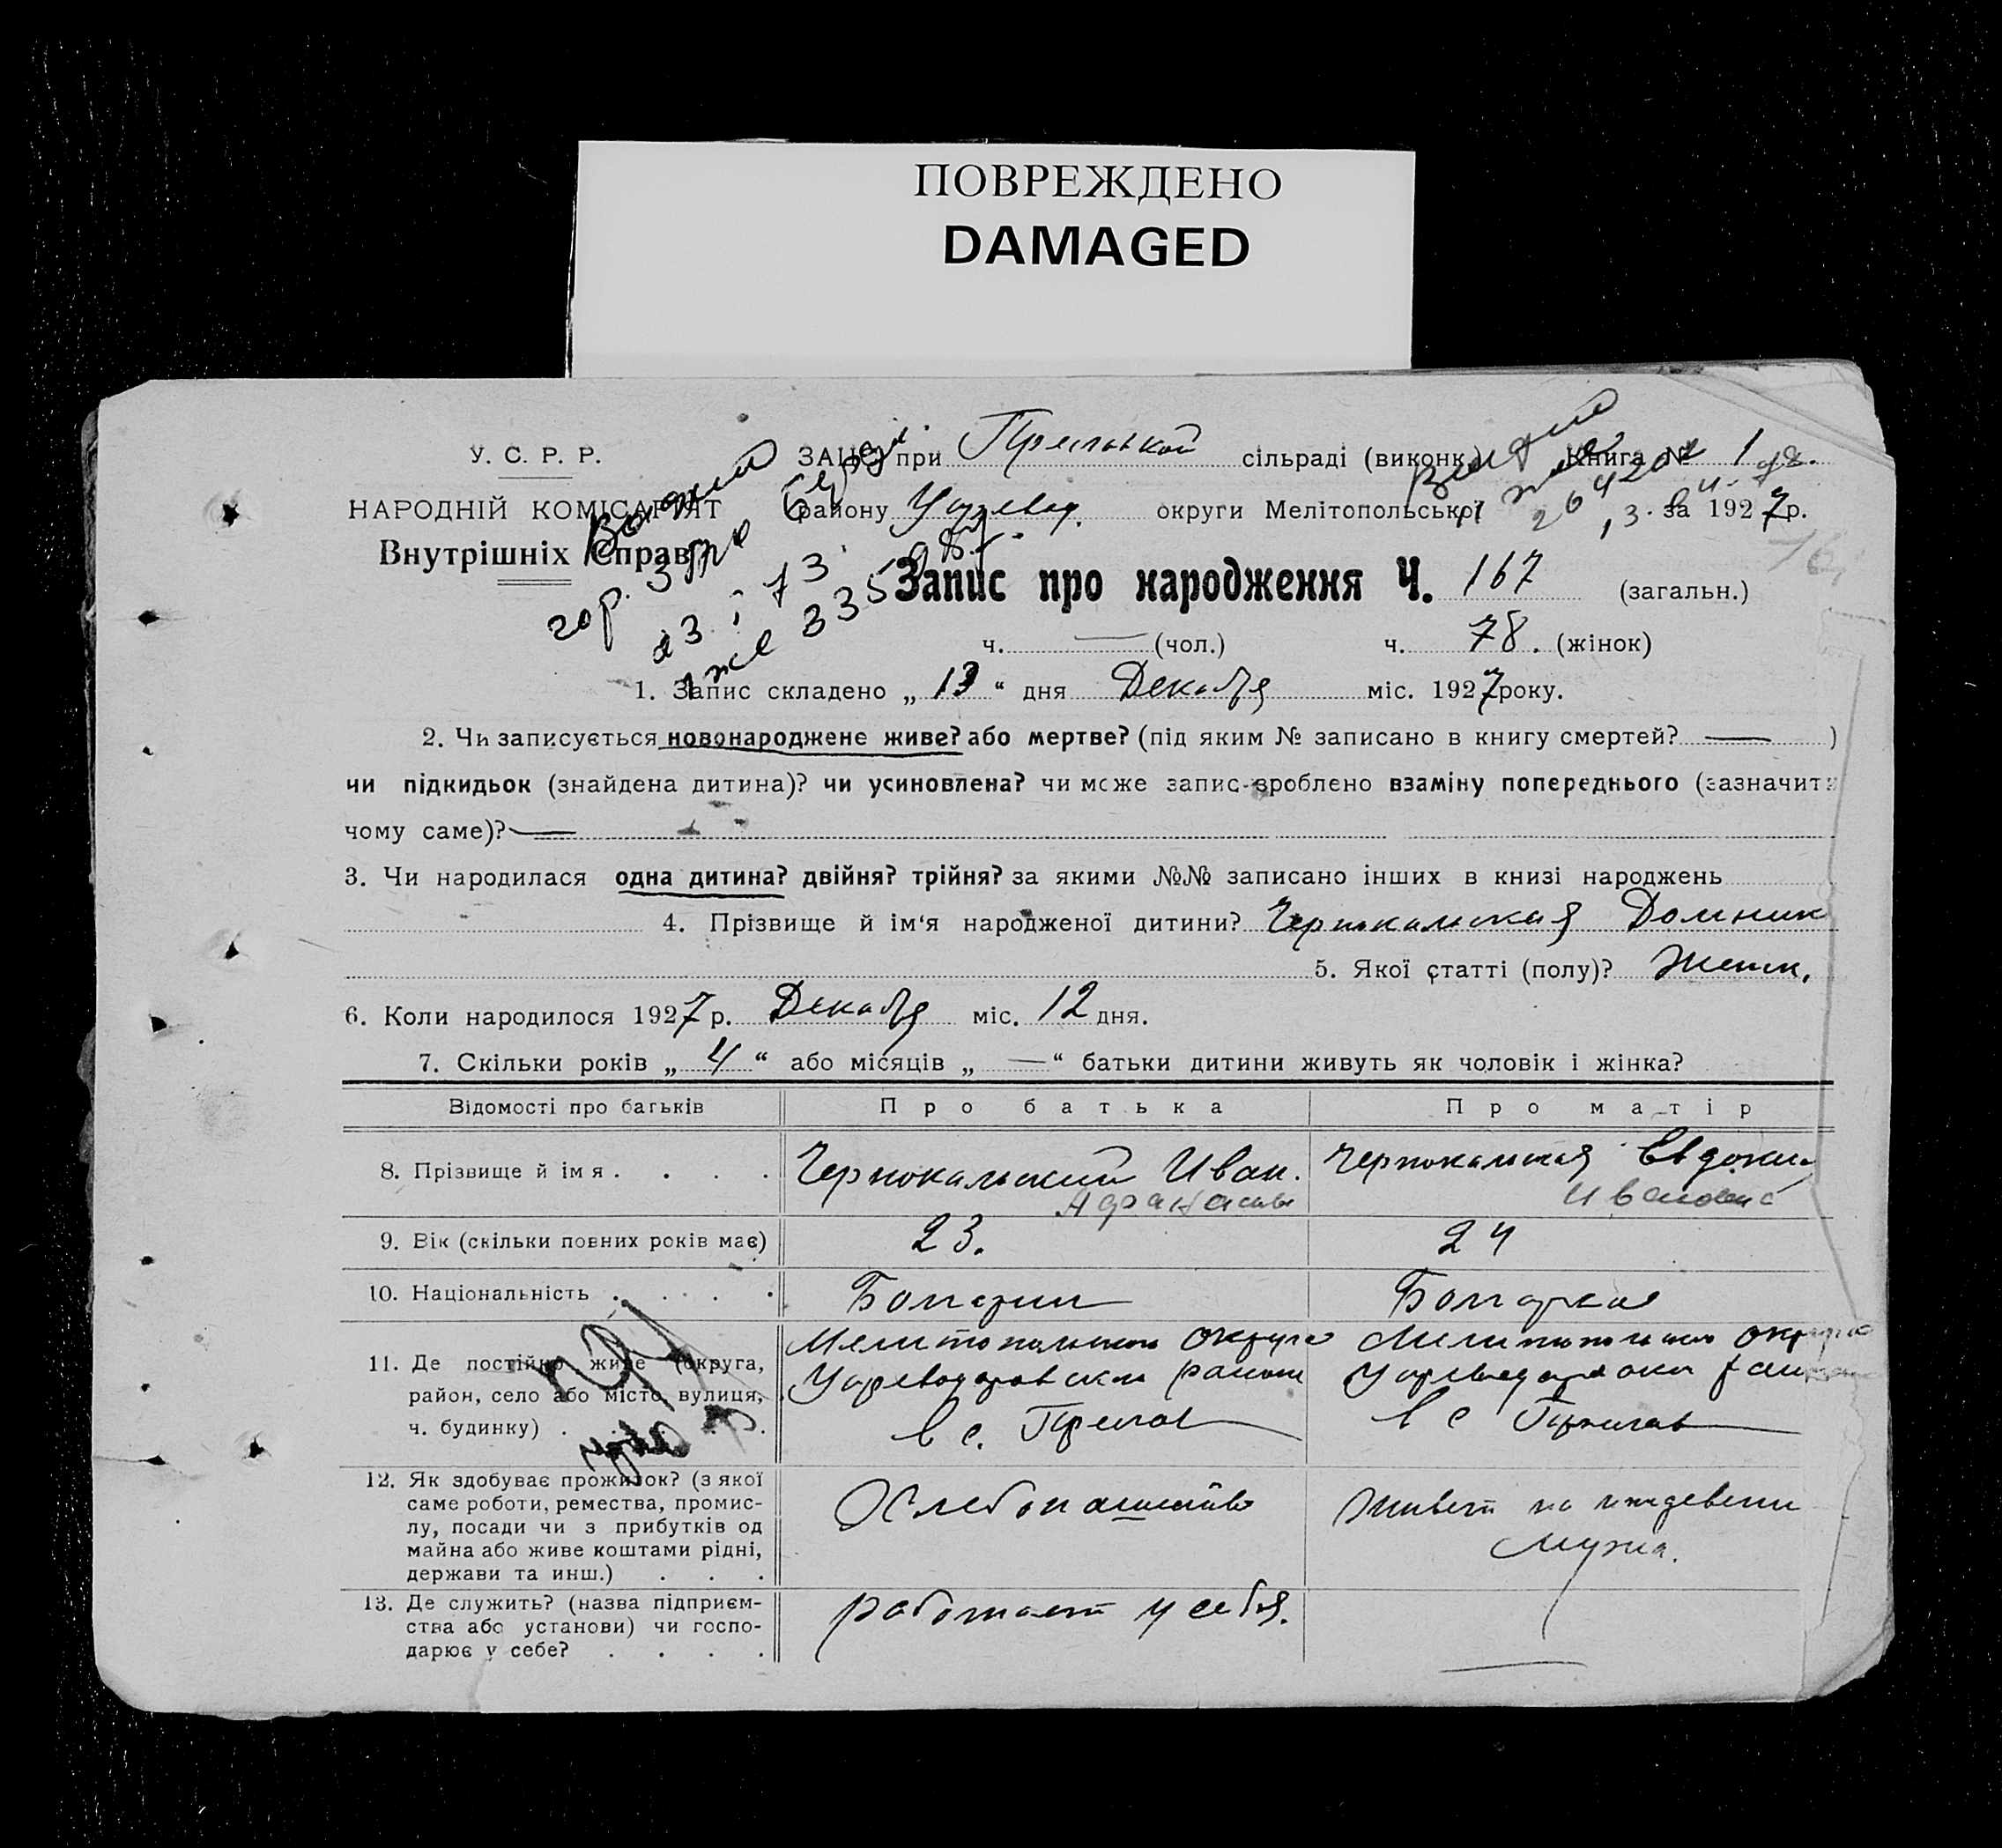 ПОВРЕЖДЕНО
DAMAGED
У. С. Р. Р.
ЗАЦС при сільраді (виконк.) Книга № 1
НАРОДНІЙ КОМІСАРІЯТ району округи Мелітопольської за 1927 р.
Внутрішніх Справ
Запис про народження Ч. 167 (загальн.)
ч. — (чол.) ч. 78. (жінок)
1. Запис складено „ 13 “ дня Декабря міс. 1927 року.
2. Чи записується новонароджене живе? або мертве? (під яким № записано в книгу смертей? — )
чи підкидьок (знайдена дитина)? чи усиновлена? чи може запис зроблено взаміну попереднього (зазначити
чому саме)? —
3. Чи народилася одна дитина? двійня? трійня? за якими №№ записано інших в книзі народжень
4. Прізвище й ім‘я народженої дитини? Чернокальская Домник
5. Якої статті (полу)? Женск.
6. Коли народилося 1927 р. Декабря міс. 12 дня.
7. Скільки років „ 4 “ або місяців „ — “ батьки дитини живуть як чоловік і жінка?
Відомості про батьків Про батька Про матір
8. Прізвище й імя . . . . Чернокальский Иван. Чернокальская Евдокия
9. Вік (скільки повних років має) 23. 24
10. Національність . . . . Болгарин Болгарка
11. Де постійно живе (округа, Мелитопольского округа Мелитопольского округа
район, село або місто, вулиця, района
ч. будинку) . . . . в с. Преслав в с Преслав
12. Як здобуває прожиток? (з якої
саме роботи, ремества, промис- Хлебопашество Живет на иждевении
лу, посади чи з прибутків од
майна або живе коштами рідні, Мужа.
держави та инш.) . . .
13. Де служить? (назва підприєм- работает у себя.
ства або установи) чи госпо-
дарює у себе? . . . . —